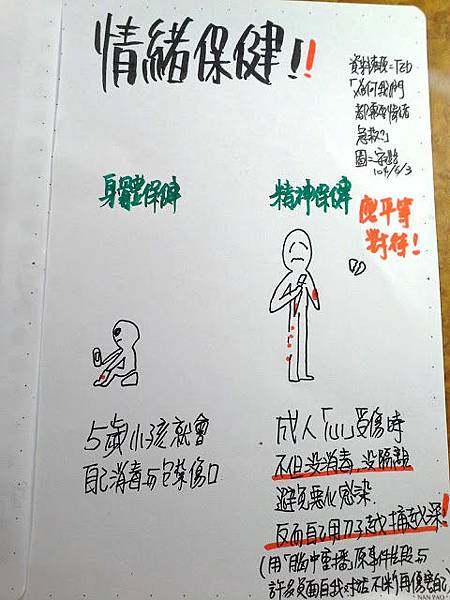 情緒保健!!
資料來源=TED
「為何我們
都需要情緒
急救?」
104/6/3
身體保健
精神保健
應平等
對待!
5歲小孩就會
自己消毒与包紮傷口
成人「心」受傷時
不但没消毒,没隔離
避免惡化感染
反而自己用刀子越捅越深!
(用「腦中重播」原事件片段与
許多負面自我對話不斷再傷害自己)
NAN PAO